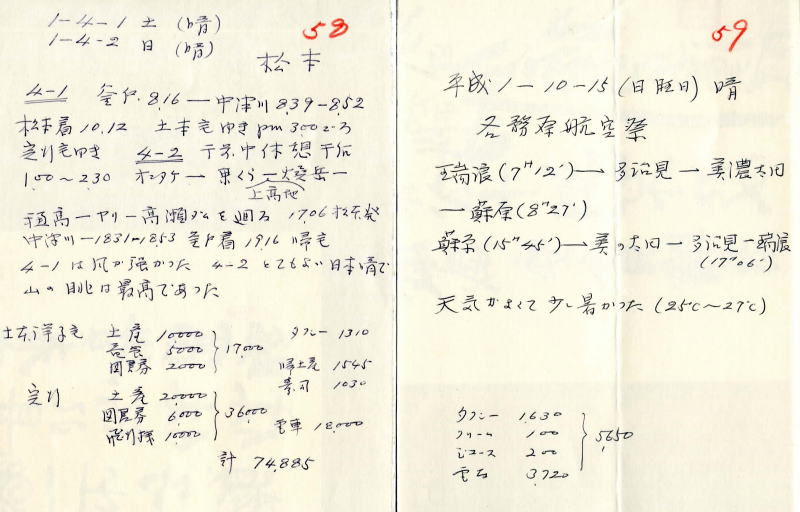 58
1-4-1 土 (晴)
1-4-2 日 (晴)
松本
4-1 釜戸 8.16 — 中津川 839-852
松本着 10.12 土本宅ゆき pm 300ころ
定川宅ゆき 4-2 午前中休憩 午后
1.00〜2.30 — 乗くら — 燒岳 —
上高地
穂高 — ヤリ — 高瀬ダムを廻る 17.06 松本発
中津川 — 1831-1853 釜戸着 19.16 帰宅
4-1 は風が強かった 4-2 とてもよい日本晴で
山の眺は最高であった
土本洋子宅 土産 10,000
5,000 17,000
図書券 2,000
タクシー 1310
帰土産 1545
寿司 1030
定川 土産 20,000
図書券 6,000 36,000
飛行機 10,000
電車 18,000
計 74,885
59
平成 1-10-15 (日曜日) 晴
各務原航空祭
瑞浪 (7H12') → 多治見 → 美濃太田
→ 蘇原 (8H27')
蘇原 (15H45') → 美の太田 → 多治見 — 瑞浪
(17H06')
天気がよくて少し暑かった (25℃〜27℃)
タクシー 1,630
クリーム 100
ジュース 200
3,720
5,650